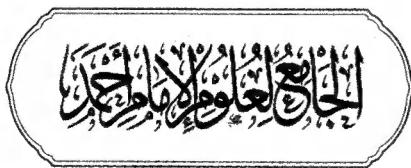 الْجَامِعُ لِعُلُومِ الْإِمَامِ أَحْمَدَ